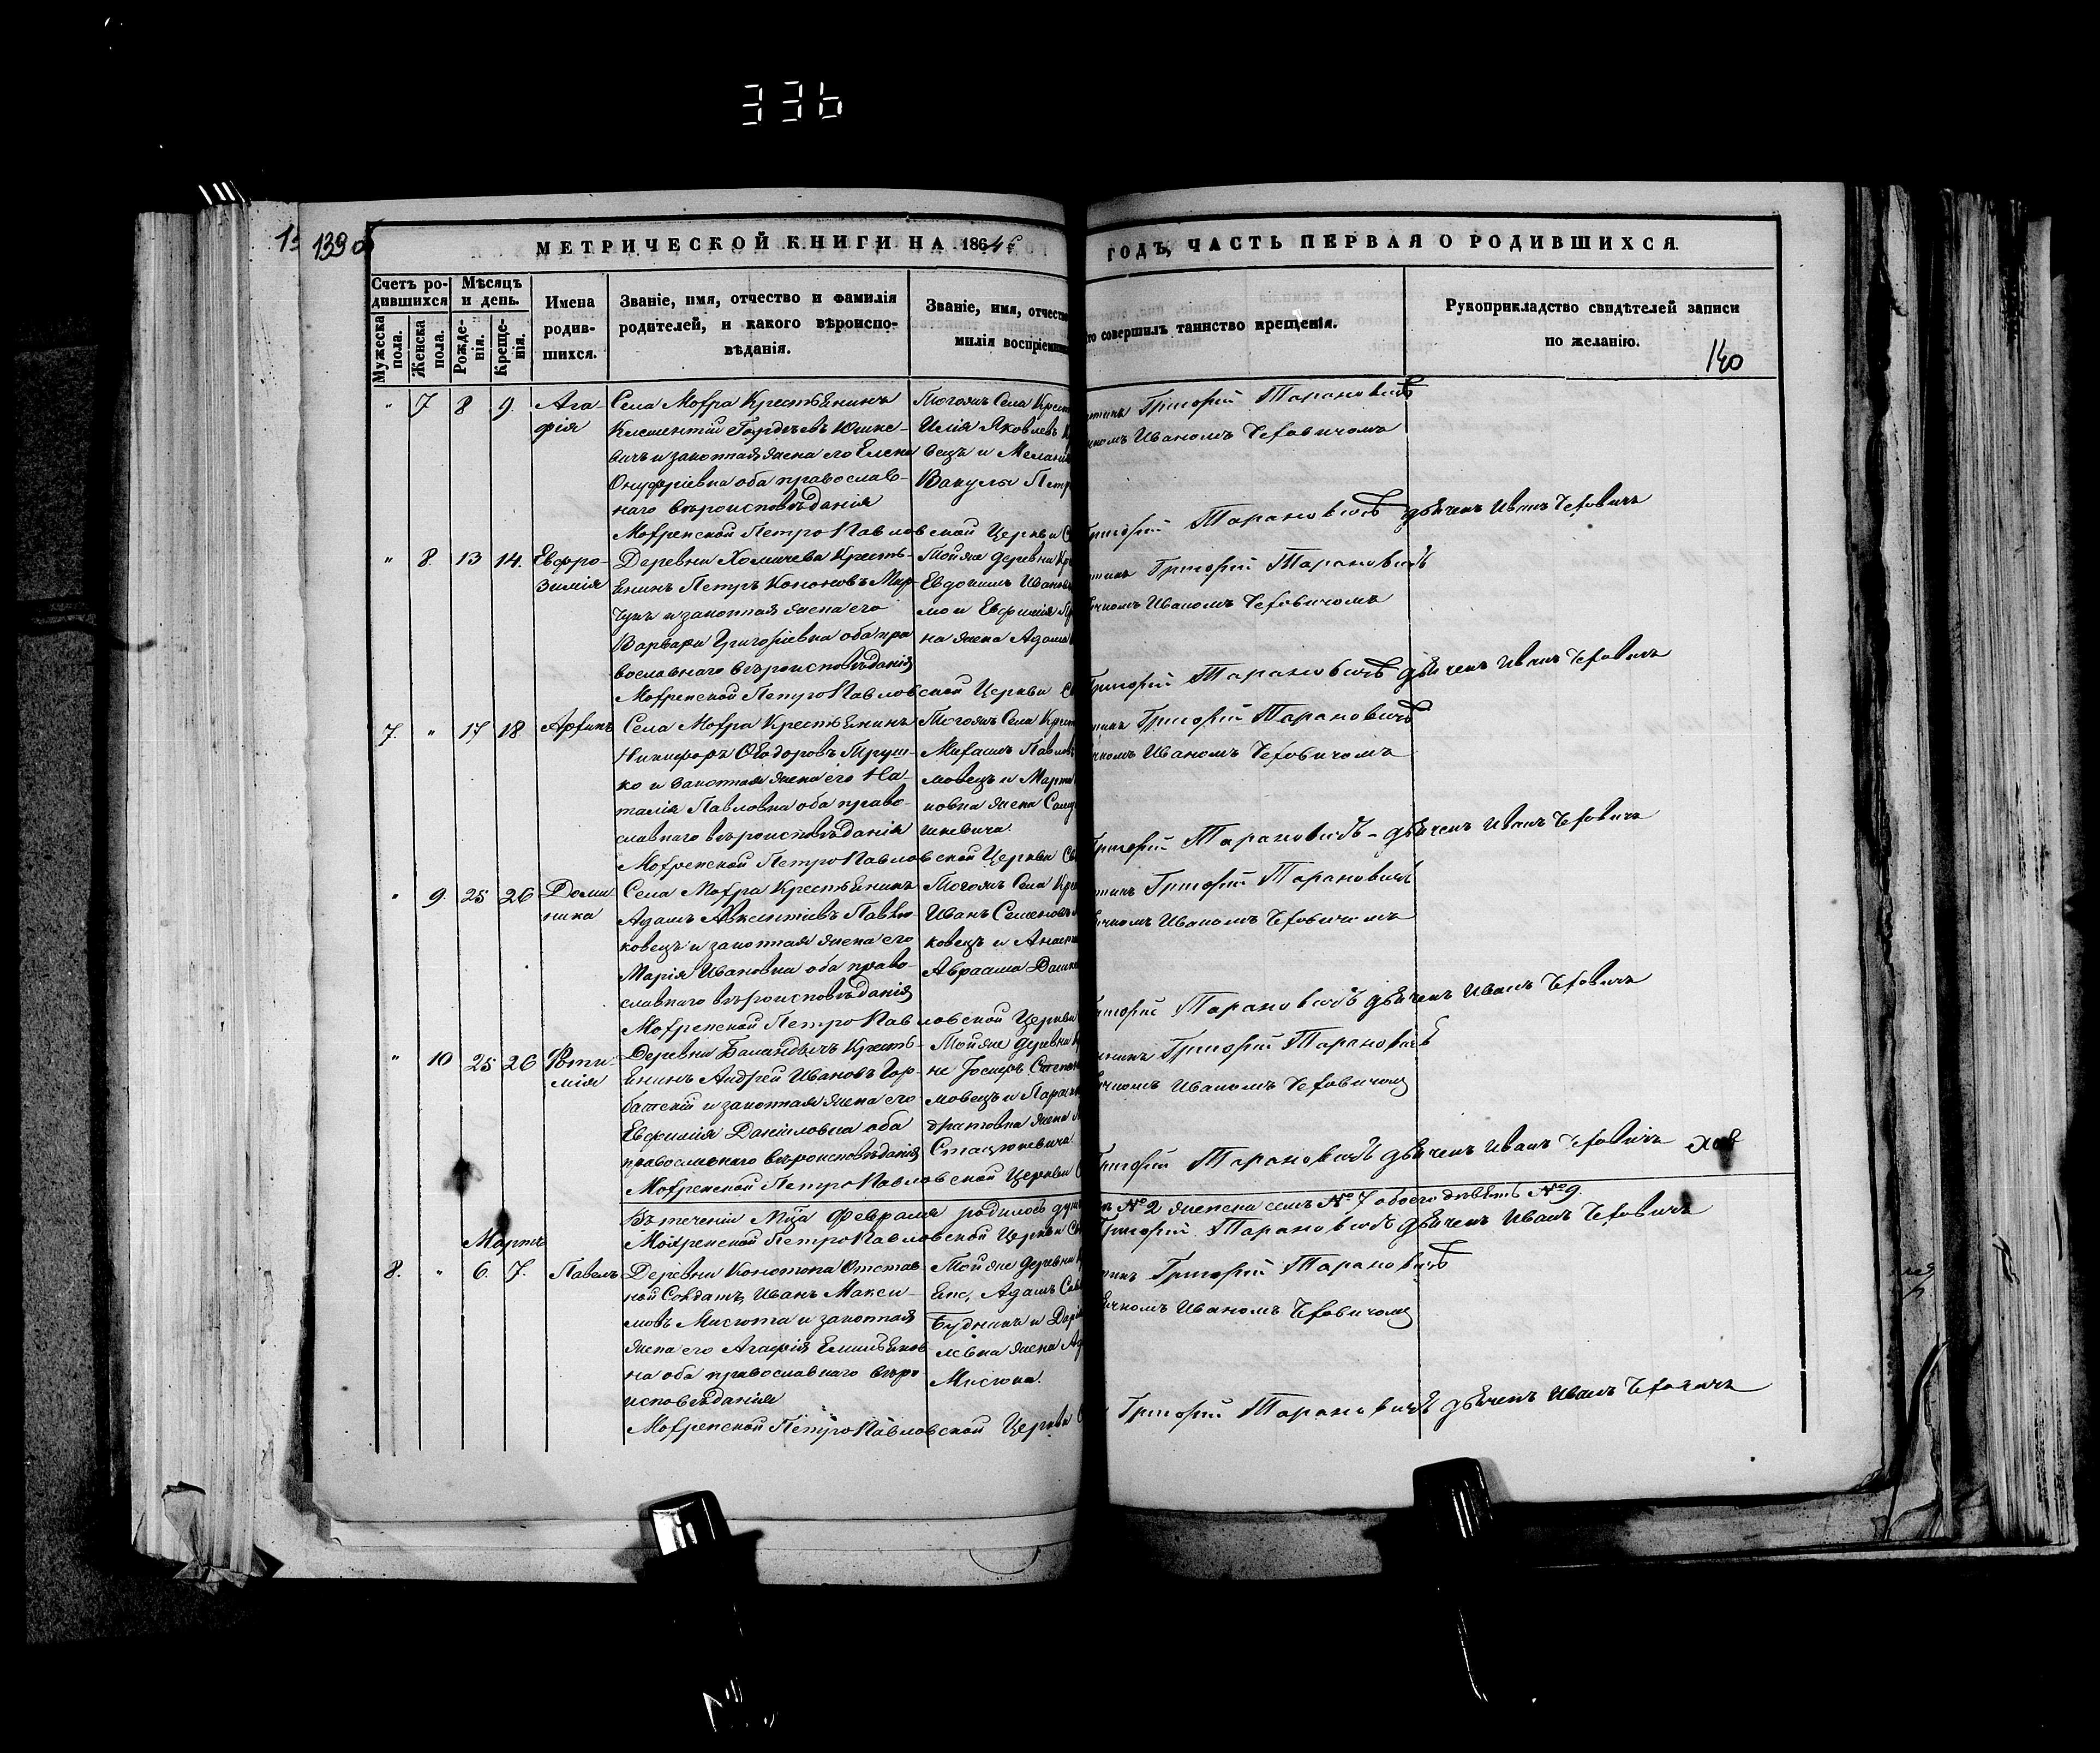 336
139 об
МЕТРИЧЕСКОЙ КНИГИ НА 186 ГОДЪ, ЧАСТЬ ПЕРВАЯ О РОДИВШИХСЯ.
Счетъ ро-
дившихся
Мѣсяцъ
и день.
Мужеска
пола.
Женска
пола.
Рожде-
нія.
Креще-
нія.
Имена
родив-
шихся.
Званіе, имя, отчество и фамилія
родителей, и какого вѣроиспо-
вѣданія.
Званіе, имя, отчество
милія воспріемник
то совершилъ таинство крещенія.
Рукоприкладство свидѣтелей записи
по желанію.
140
" 7 8 9. Ага-
фія
Села Мохра Крестьянинъ
Климентій Гордѣевъ Юшке-
вичъ и законная жена его Елена
Онуфріевна оба православ-
наго вѣроисповѣданія
Тогожъ Села Крест
Илія Яковлевъ
вецъ и Меланія
Вакулы Петр
Григорій Тарановичъ
Иваномъ Чеховичомъ
Мохренской ПетроПавловской Церкви
Григорій Тарановичъ дьячекъ Иванъ Чеховичъ
" 8. 13 14. Евфро-
зинія
Деревни Хомичева Кресть-
янинъ Петръ Кононовъ Мар-
чукъ и законная жена его
Варвара Григоріевна оба пра
вославнаго вѣроисповѣданія
Тойже деревни
Евдокимъ Иванов
мо и Евфимія
на жена Адама
Григорій Тарановичъ
Иваномъ Чеховичомъ
Мохренской ПетроПавловской Церкви
Григорій Тарановичъ дьячекъ Иванъ Чеховичъ
7. " 17 18 Архипъ
Села Мохра Крестьянинъ
Никифоръ Ѳеодоровъ Груш-
ко и законная жена его На-
талія Павловна оба право-
славнаго вѣроисповѣданія
Тогожъ Села Крест
Михаилъ Павлов
мовецъ и Марта
новна жена
шкевича.
Григорій Тарановичъ
Иваномъ Чеховичомъ
Мохренской ПетроПавловской Церкви
Григорій Тарановичъ - дьячекъ Иванъ Чеховичъ
" 9. 25 26 Доми
ника
Села Мохра Крестьянинъ
Адамъ Авксентіевъ Павлю
ковецъ и законная жена его
Марія Ивановна оба право-
славнаго вѣроисповѣданія
Тогожъ Села
Иванъ Семеновъ
ковецъ и Анаст
Авраама
Григорій Тарановичъ
Иваномъ Чеховичомъ
Мохренской ПетроПавловской Церкви
Григорій Тарановичъ дьячекъ Иванъ Чеховичъ
" 10 25 26
мія
Деревни Баландичъ Кресть-
янинъ Андрей Ивановъ Гор-
батскій и законная жена его
Евфимія Даниловна оба
православнаго вѣроисповѣданія
Тойже деревни
не Іосифъ Степан
мовецъ и Параск
дратовна жена
Стацкевича.
Григорій Тарановичъ
Иваномъ Чеховичомъ
Мохренской ПетроПавловской Церкви
Григорій Тарановичъ дьячекъ Иванъ Чеховичъ
Въ теченіи Мца Февраля родилось душ № 2 женска семь № 7 обоего девять № 9.
Мохренской ПетроПавловской Церкви
Григорій Тарановичъ дьячекъ Иванъ Чеховичъ
Мартъ
8. " 6. 7. Павелъ
Деревни Конотопа Отстав
ной Солдатъ Иванъ Макси-
мовъ Мисюта и законная
жена его Агафія Емильянов
на оба православнаго вѣро
исповѣданія
Тойже деревни
Адамъ Сав
Будникъ и Дарія
левна жена
Григорій Тарановичъ
Иваномъ Чеховичомъ
Мохренской ПетроПавловской Церкви
Григорій Тарановичъ дьячекъ Иванъ Чеховичъ